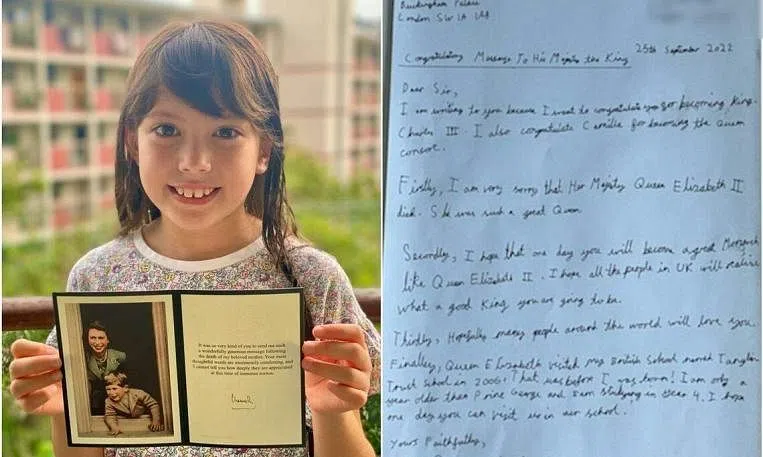 It was so very kind of you to send me such
a wonderfully generous message following
the death of my beloved mother. Your most
thoughtful words are enormously comforting, and
I cannot tell you how deeply they are appreciated
at this time of immense sorrow.
Buckingham Palace
London SW 1A 1AA
25th September 2022
Congratulatory Message To His Majesty the King
Dear Sir,
I am writing to you because I want to congratulate you for becoming King
Charles III. I also congratulate Camilla for becoming the Queen
consort.
Firstly, I am very sorry that Her Majesty Queen Elizabeth II
died. She was such a great Queen
Secondly, I hope that one day you will become a great Monarch
like Queen Elizabeth II. I hope all the people in UK will realise
what a good King you are going to be.
Thirdly, Hopefully many people around the world will love you.
Finally, Queen Elizabeth visited my British School named Tanglin
Trust School in 2006! That was before I was born! I am only a
year older than Prince George and I am studying in year 4. I hope
one day you can visit us in our school.
Yours Faithfully,